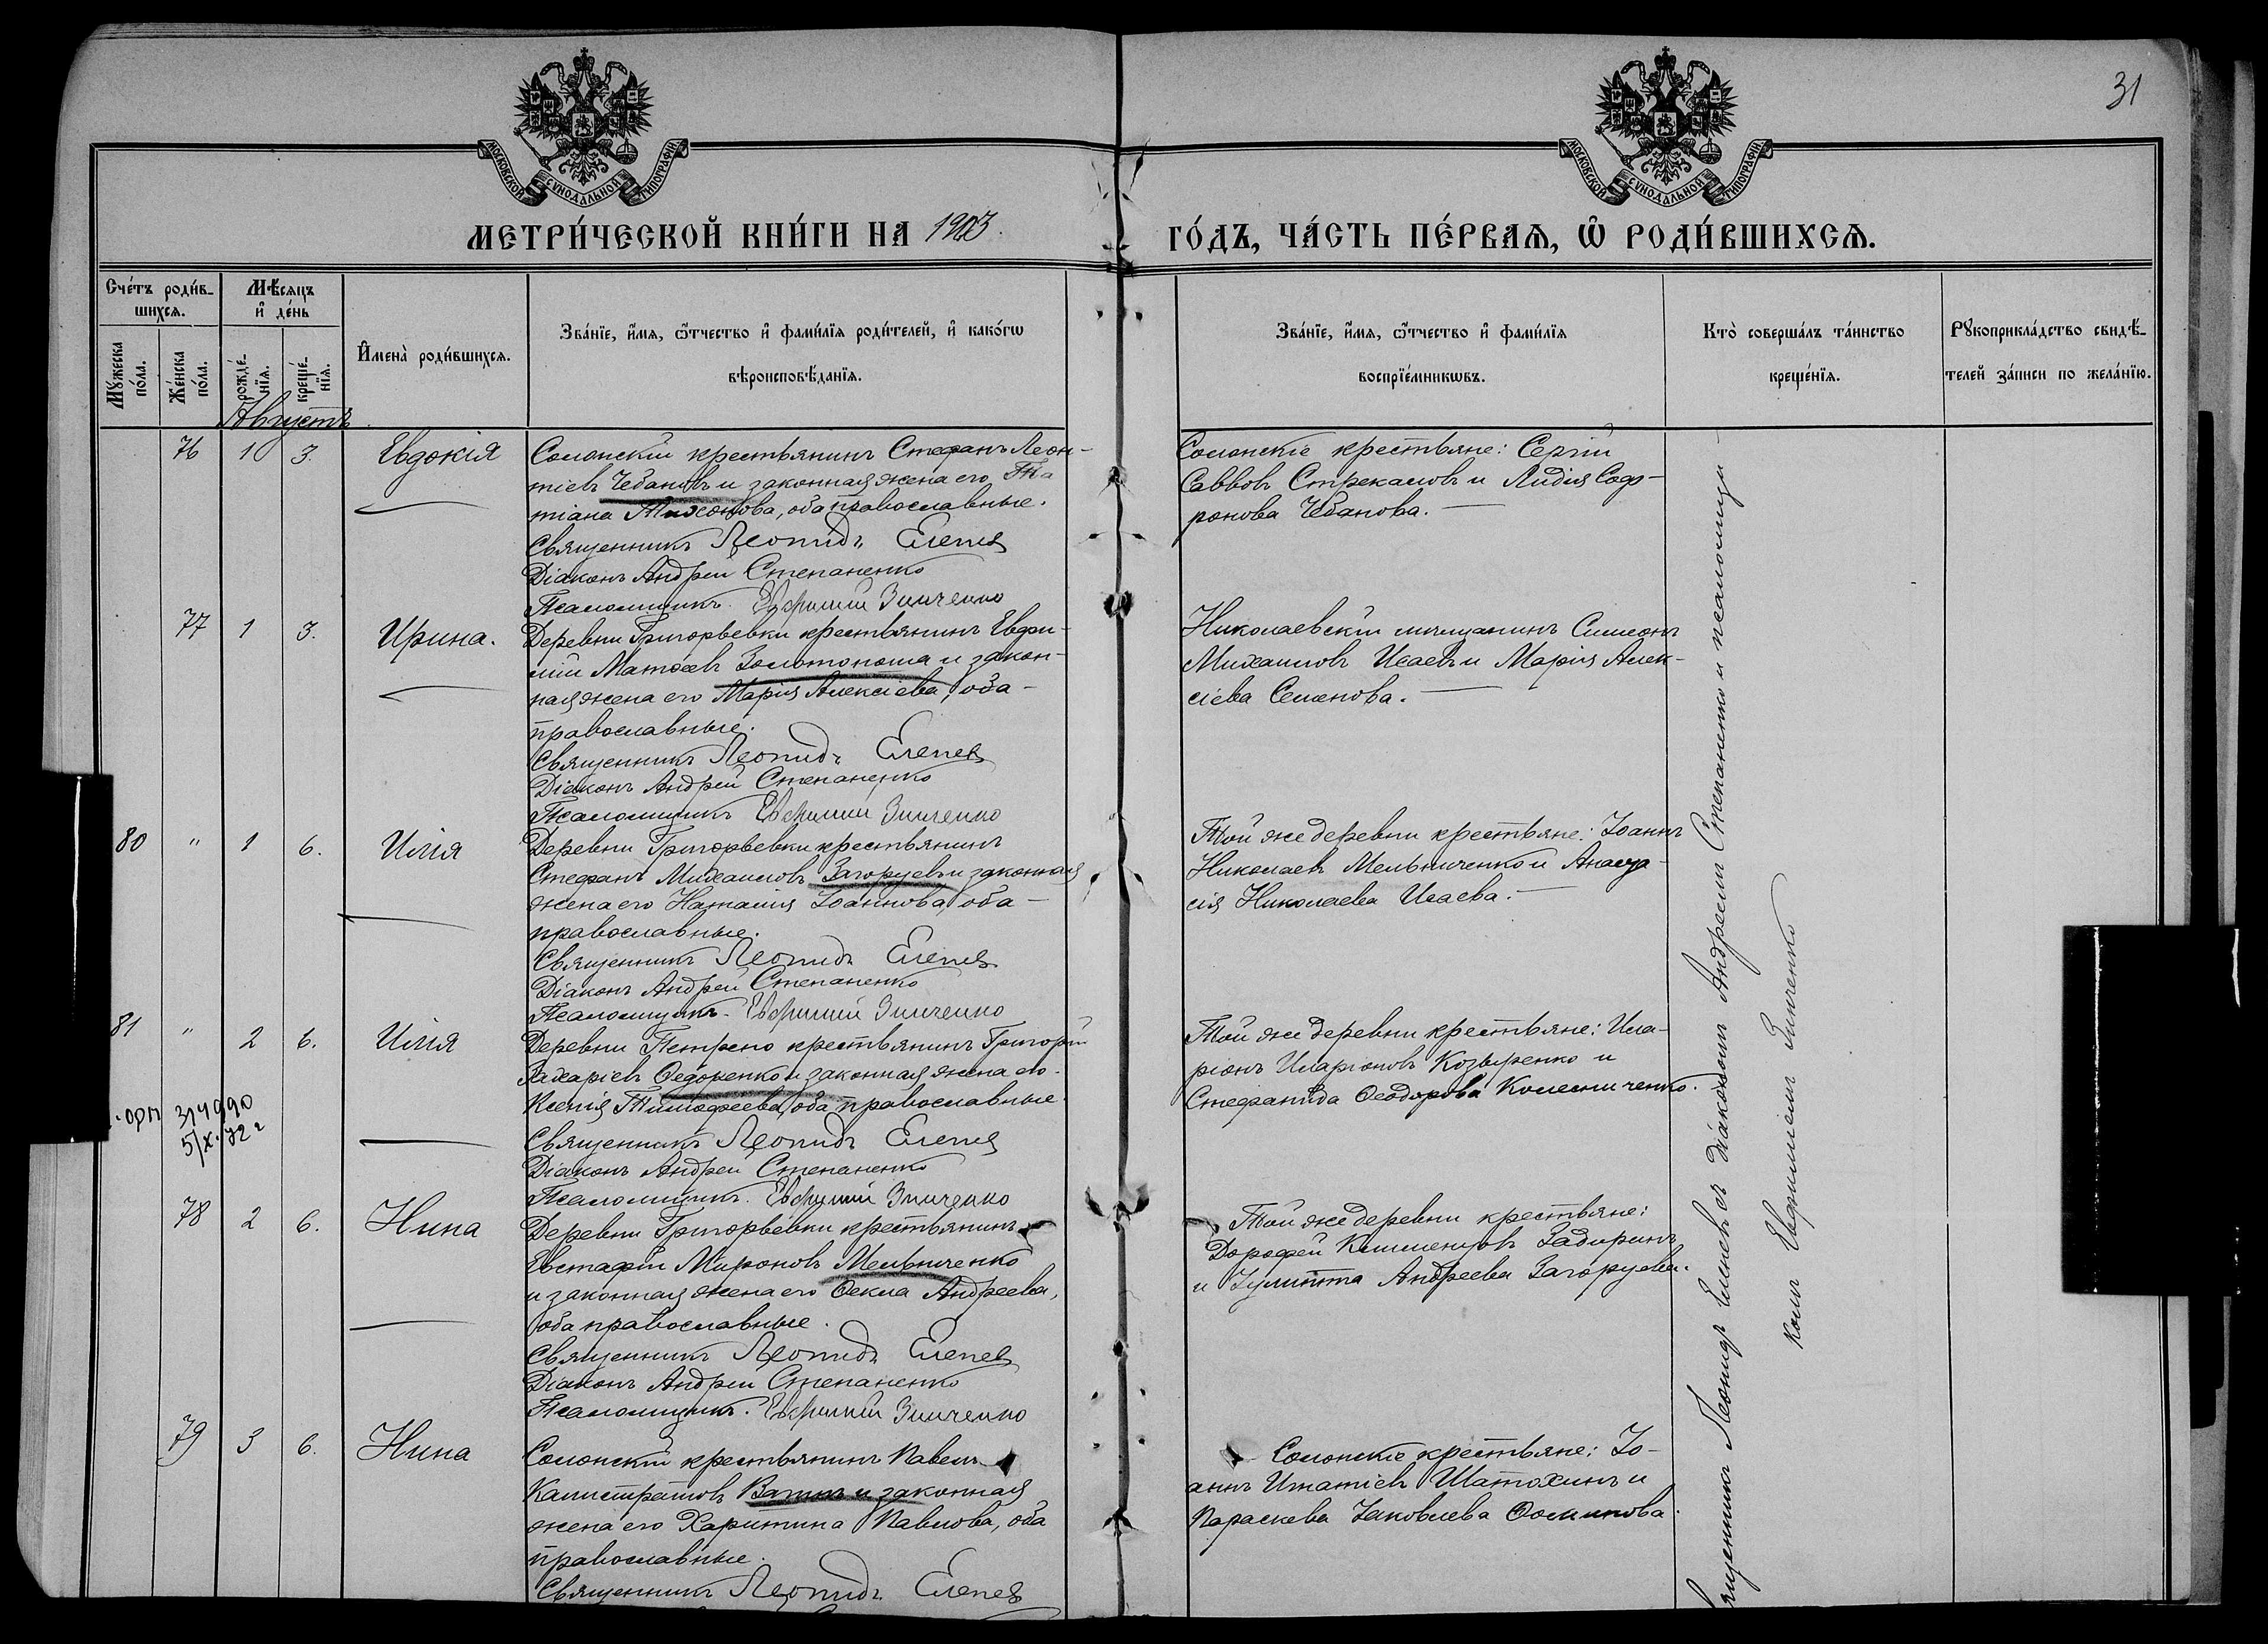 31
МОСКОВСКОЙ СѴНОДАЛЬНОЙ ТИПОГРАФІИ
МОСКОВСКОЙ СѴНОДАЛЬНОЙ ТИПОГРАФІИ
МЕТРИ́ЧЕСКОЙ КНИ́ГИ НА 1903.
ГО́ДЪ, ЧА́СТЬ ПЕ́РВАѦ, Ѡ҆ РОДИ́ВШИХСѦ.
Сче́тъ роди́в-
шихсѧ.
Мѣ́сѧцъ
и҆ де́нь
Мꙋ́жеска
по́ла.
Же́нска
по́ла.
рожде́-
нїѧ.
креще́-
нїѧ.
И҆мена̀ роди́вшихсѧ.
Зва́нїе, и҆́мѧ, ѻ҆́тчество и҆ фами́лїѧ роди́телей, и҆ како́гѡ
вѣроисповѣ́данїѧ.
Зва́нїе, и҆́мѧ, ѻ҆́тчество и҆ фами́лїѧ
воспрїе́мникѡвъ.
Кто̀ соверша́лъ та́инство
креще́нїѧ.
Рꙋкоприкла́дство свидѣ́-
телей за́писи по жела́нїю.
Августъ
76 1 3. Евдокія
Солонскій крестьянинъ Стефанъ Леон-
тіевъ Чебановъ и законная жена его Та
тіана Тихонова, оба православные.
Священникъ Леонидъ Еленевъ
Діаконъ Андрей Степаненко
Псаломщикъ Евфимій Зинченко
Солонскіе крестьяне: Сергій
Саввовъ Стрекаловъ и Лидія Соф-
ронова Чебанова.
77 1 3. Ирина.
Деревни Григорьевки крестьянинъ Евфи-
мій Матѳеевъ Золотоноша и закон-
ная жена его Марія Алексіева, оба
православные.
Священникъ Леонидъ Еленевъ
Діаконъ Андрей Степаненко
Псаломщикъ Евфимій Зинченко
Николаевскій мѣщанинъ Симеонъ
Михаиловъ Исаевъ и Марія Алек-
сіева Семенова.
80 " 1 6. Илія
Деревни Григорьевки крестьянинъ
Стефанъ Михаиловъ Загоруевъ и законная
жена его Наталія Іоаннова, оба
православные.
Священникъ Леонидъ Еленевъ
Діаконъ Андрей Степаненко
Псаломщикъ Евфимій Зинченко
Той же деревни крестьяне: Іоаннъ
Николаевъ Мельниченко и Анаста-
сія Николаева Исаева.
81 " 2 6. Илія
Деревни Петрено крестьянинъ Григорій
Захаріевъ Ѳедоренко и законная жена его
Ксенія Тимоѳеева, оба православные.
Священникъ Леонидъ Еленевъ
Діаконъ Андрей Степаненко
Псаломщикъ Евфимій Зинченко
Той же деревни крестьяне: Ила-
ріонъ Иларіоновъ Козыренко и
Стефанида Ѳеодорова Колесниченко.
314990
5/X-72 г
78 2 6. Нина
Деревни Григорьевки крестьянинъ
Евстафій Мироновъ Мельниченко
и законная жена его Ѳекла Андреева,
оба православные.
Священникъ Леонидъ Еленевъ
Діаконъ Андрей Степаненко
Псаломщикъ Евфимій Зинченко
Той же деревни крестьяне:
Дорофей Климентовъ Задиринъ
и Іулитта Андреева Загоруева.
79 3 6. Нина
Солонскій крестьянинъ Павелъ
Калистратовъ и законная
жена его Харитина Павлова, оба
православные.
Священникъ Леонидъ Еленевъ
Солонскіе крестьяне: Іо-
аннъ Игнатіевъ Шатохинъ и
Параскева Іаковлева
Священникъ Леонидъ Еленевъ съ діакономъ Андреемъ Степаненко и псаломщи-
комъ Евфиміемъ Зинченко